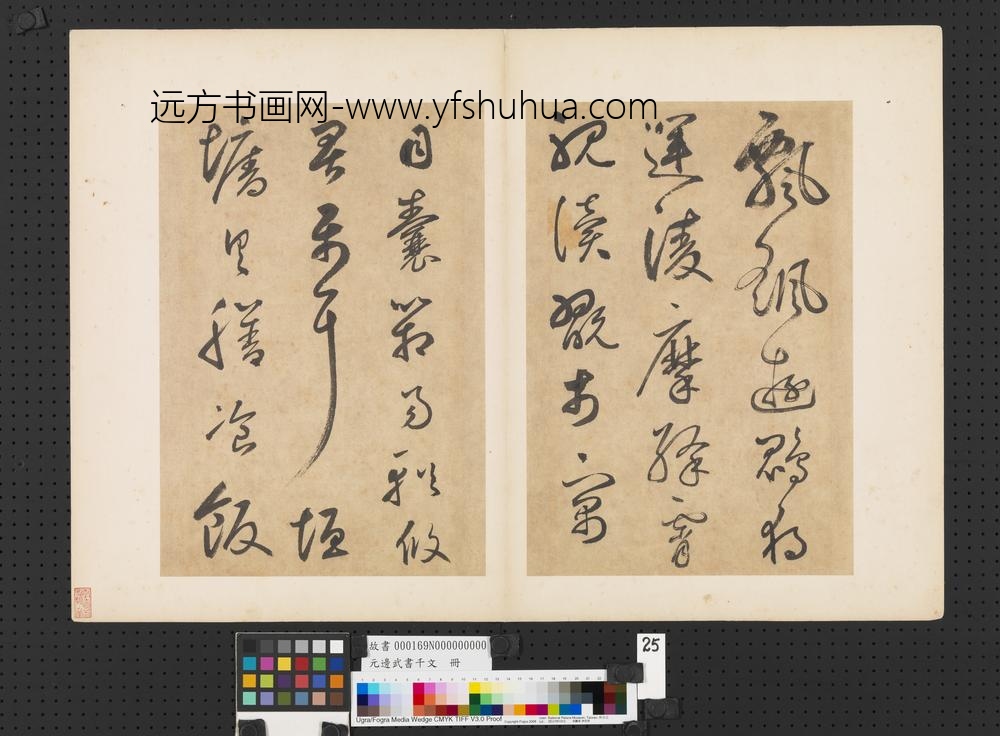 远方书画网-www.yfshuhua.com
飄颻遊鵾獨
運凌摩絳霄
耽讀翫市寓
目囊箱易輶攸
畏屬耳垣
墻具膳飡飯
25
故書 000169N000000000
元邊武書千文 冊
Ugra/Fogra Media Wedge CMYK TIFF V3.0 Proof